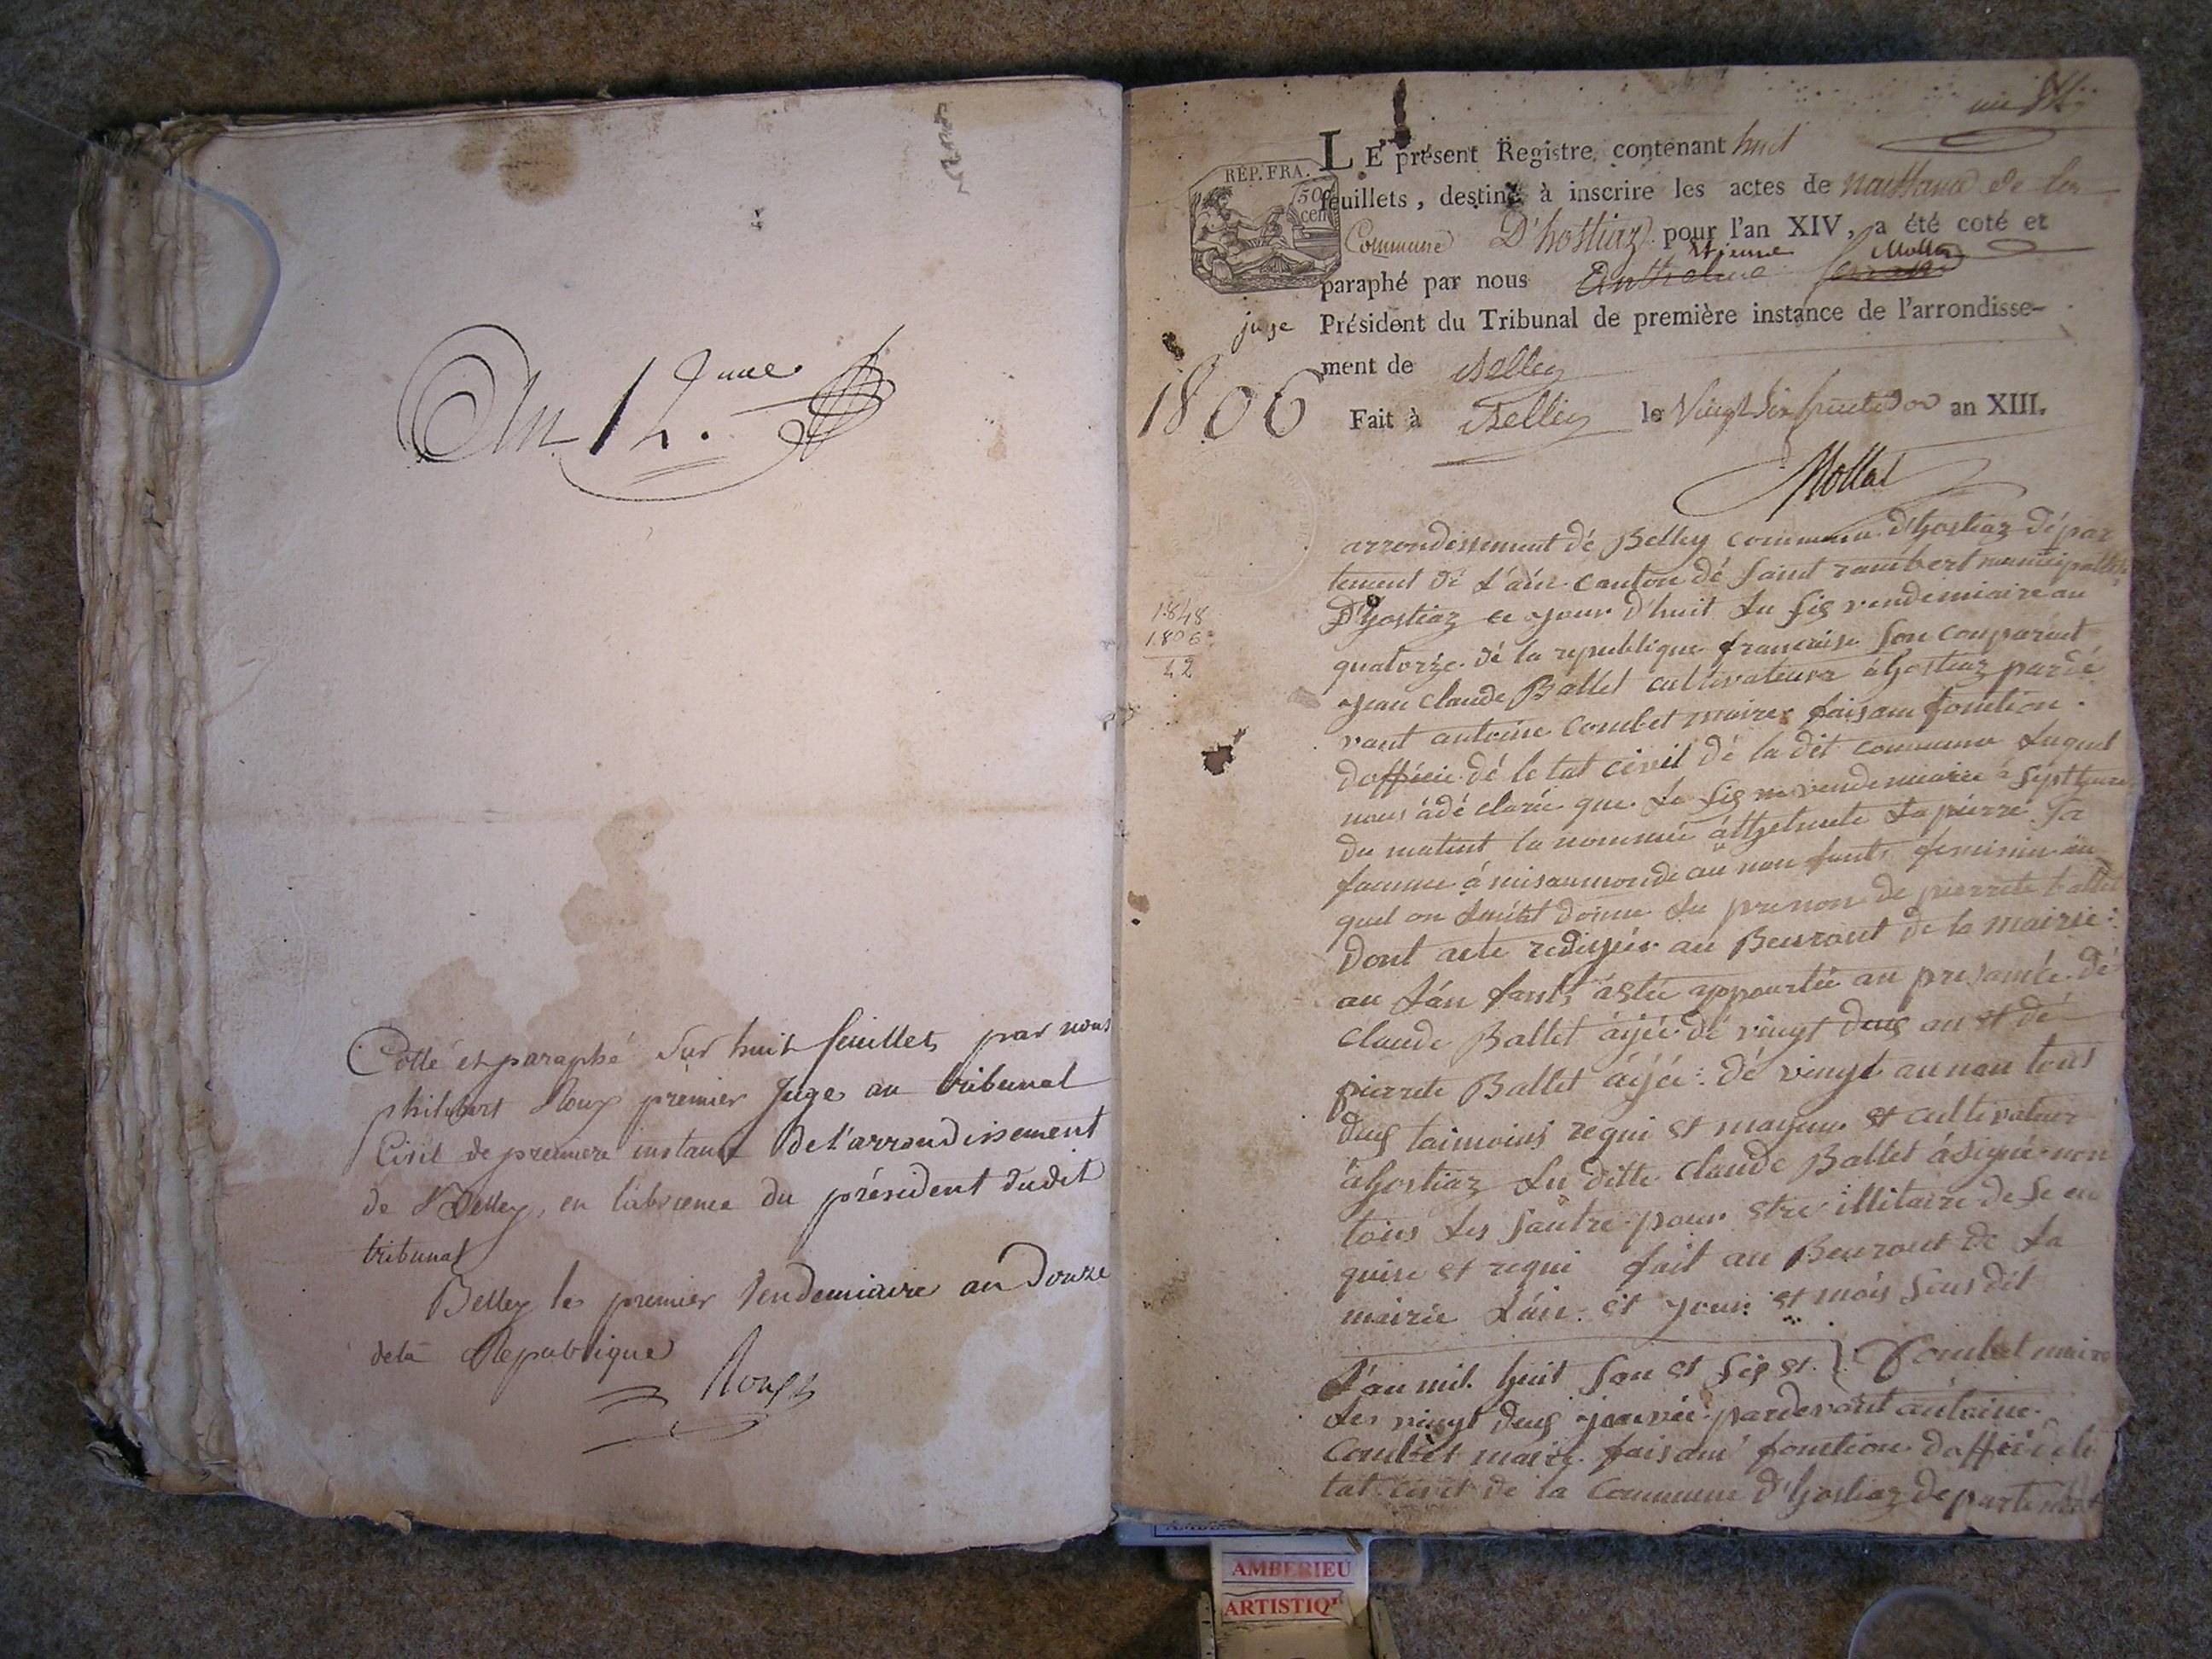 An 12.eme
Cotté et paraphé sur huit feuillets par nous
philibert Roux premier Juge au tribunal
Civil de premiere instance de l'arrondissement
de Belley, en l'absence du président dudit
tribunal
Belley le premier Vendemiaire an Douze
de la Republique
Roux
an 14
LE présent Registre, contenant huit
feuillets, destiné à inscrire les actes de naissance de la
Commune D'hostiaz pour l'an XIV, a été coté et
Etienne Mollet
paraphé par nous Anthelme
juge Président du Tribunal de première instance de l'arrondisse-
ment de Belley
1806
Fait à Belley le Vingt six fructidor an XIII.
Mollet
RÉP. FRA.
50
cen
arrondissement dé Belley commune d'hostiaz dépar
tement dé L'ain canton dé saint rambert municipallité
D'hostiaz ce jour d'huit Lu sis vendemiaire an
quatorze dé la republique francaise son comparut
jean claude Ballet cultivateura àhostiaz pardé
vant antoine combet maire faisam fonction
dofficie dé le tat civil dé la dit commune Luquel
nous àdé clarée que Le sis vendemiaire à sépt heure
du matint la nommée àthelmete Lapierre sa
famme à misaumonde au nan fants feminin au
quel on donne Lu prenon de pierrete ballet
Dont acte redigée au Beurant de la mairie
au Lán fants àstée appourtée au presamce dé
claude Ballet àijée dé vingt deus an et dé
pierrete Ballet àijée dé vingt an nan tous
deus taimoins requi et mayeur et cultivateur
àhostiaz Lu ditte claude Ballet àsigné non
tous Les sautre pour stre illitaire de se en
quire et requi fait au Beuraut de La
mairie L'an et jour et mois sous dit
Combet maire
L'an mil huit san et sis et
Les vingt deus janvié pardevant antoine
Combet maire faisam fonction dofficié dele
tat civil de la commune d'hostiaz departement
1848
1806
42
AMBERIEU
ARTISTIQ